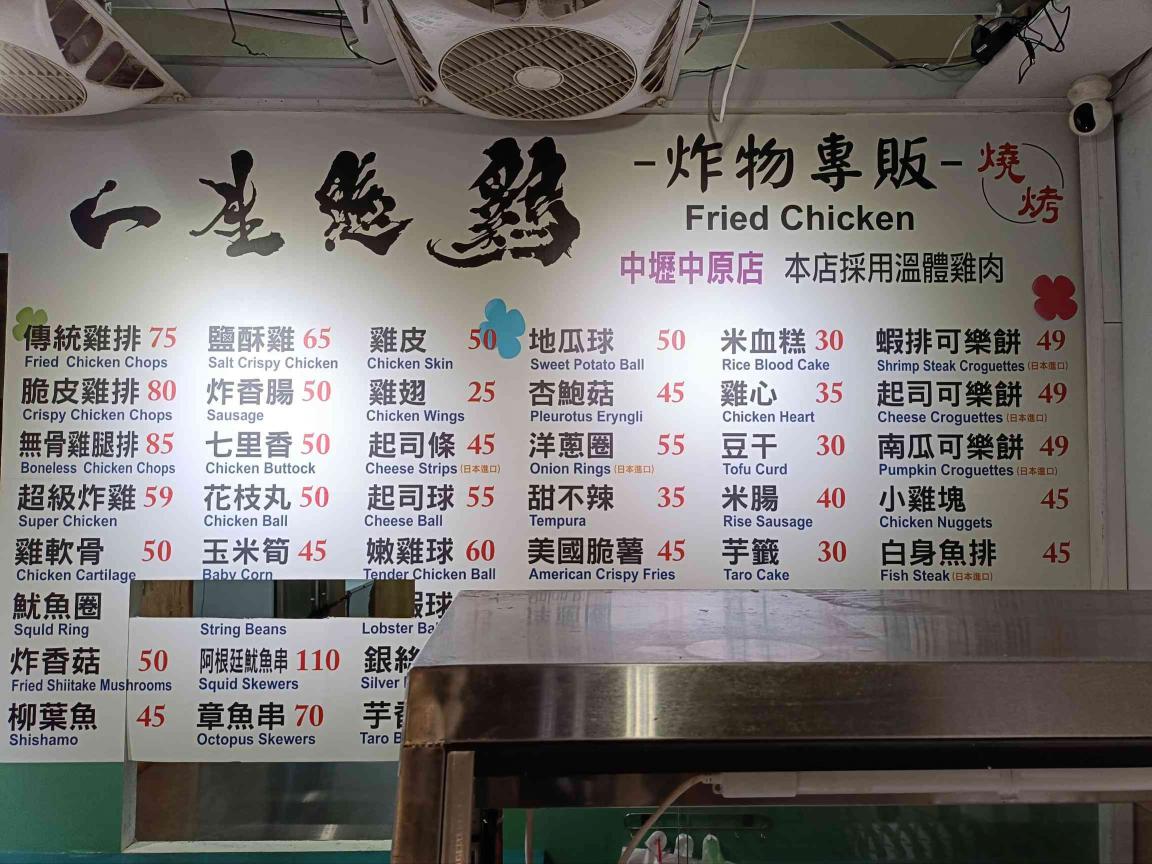 人生馳鷄
-炸物專販-
Fried Chicken
燒烤
中壢中原店 本店採用溫體雞肉
傳統雞排 75
Fried Chicken Chops
脆皮雞排 80
Crispy Chicken Chops
無骨雞腿排 85
Boneless Chicken Chops
超級炸雞 59
Super Chicken
雞軟骨 50
Chicken Cartilage
魷魚圈
Squld Ring
炸香菇 50
Fried Shiitake Mushrooms
柳葉魚 45
Shishamo
鹽酥雞 65
Salt Crispy Chicken
炸香腸 50
Sausage
七里香 50
Chicken Buttock
花枝丸 50
Chicken Ball
玉米筍 45
Baby Corn
String Beans
阿根廷魷魚串 110
Squid Skewers
章魚串 70
Octopus Skewers
雞皮 50
Chicken Skin
雞翅 25
Chicken Wings
起司條 45
Cheese Strips (日本進口)
起司球 55
Cheese Ball
嫩雞球 60
Tender Chicken Ball
蝦球
Lobster Ba
銀絲
Silver
芋香
Taro B
地瓜球 50
Sweet Potato Ball
杏鮑菇 45
Pleurotus Eryngli
洋蔥圈 55
Onion Rings (日本進口)
甜不辣 35
Tempura
美國脆薯 45
American Crispy Fries
米血糕 30
Rice Blood Cake
雞心 35
Chicken Heart
豆干 30
Tofu Curd
米腸 40
Rise Sausage
芋籤 30
Taro Cake
蝦排可樂餅 49
Shrimp Steak Croguettes (日本進口)
起司可樂餅 49
Cheese Croguettes (日本進口)
南瓜可樂餅 49
Pumpkin Croguettes (日本進口)
小雞塊 45
Chicken Nuggets
白身魚排 45
Fish Steak (日本進口)